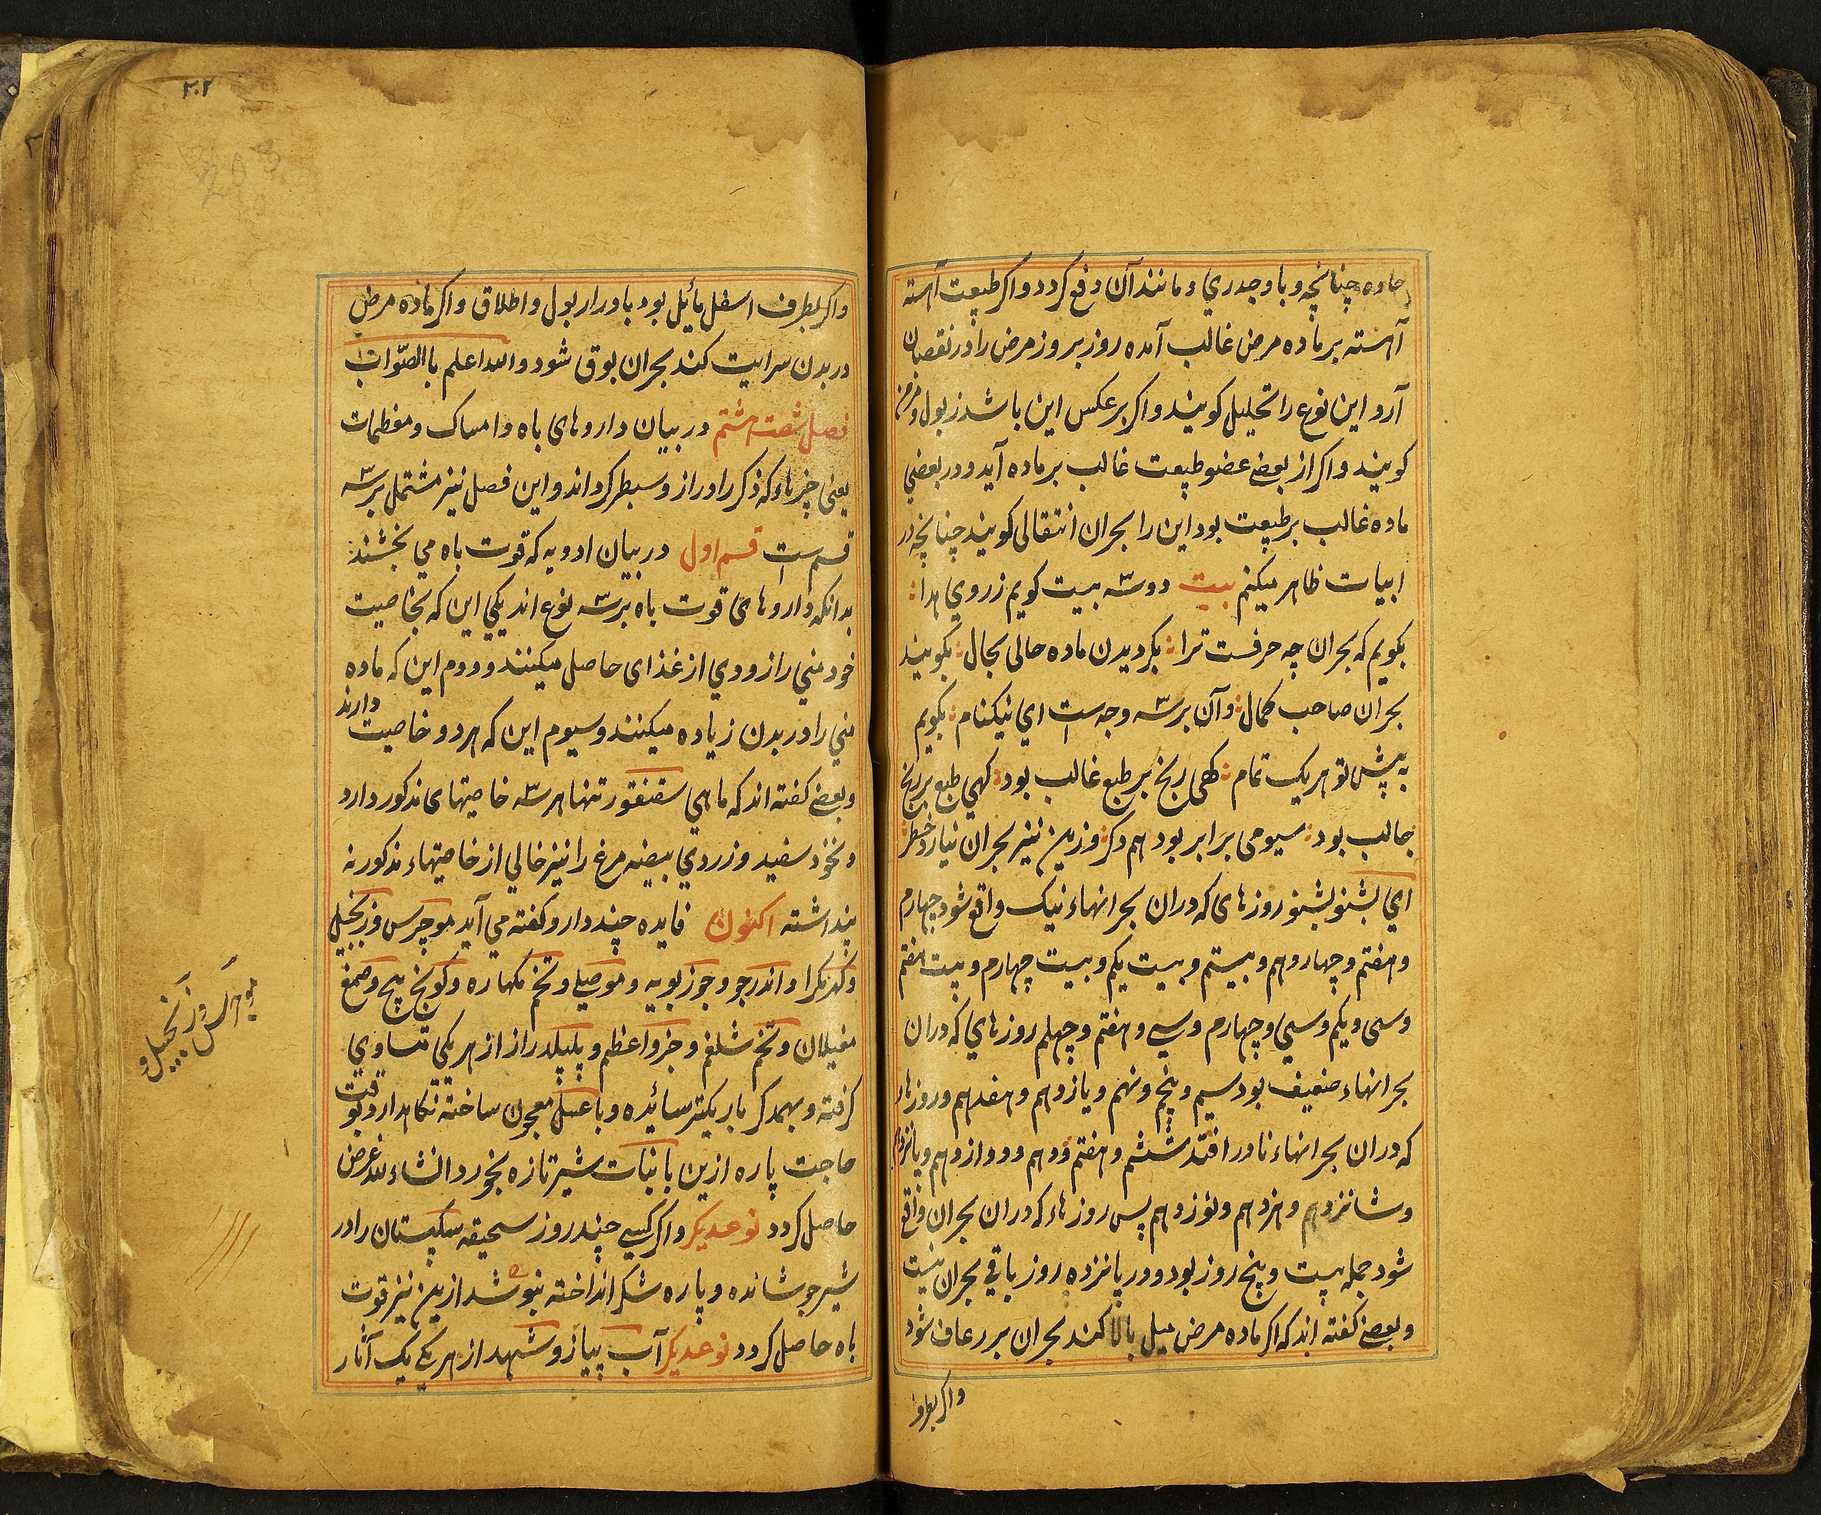 حاده چنانچه وبا وجدري ومانند آن دفع كردد واكر طبيعت آهسته
آهسته بر ماده مرض غالب آمده روز بروز مرض را در نقصان
آرد اين نوع را تحليل كويند واكر بر عكس اين باشد زبول
كويند واكر از بعضے عضو طبيعت غالب بر ماده آيد ودر بعضي
ماده غالب بر طبيعت بود اين را بحران انتقالى كويند چنانچه در
ابيات ظاهر ميكنم بيت دو سه بيت كويم ز روي هدا
بكويم كه بحران چه حرفست ترا بكرديدن ماده حالى بحال بكويند
بحران صاحب كمال وآن بر سه وجه است اي نيكنام بكويم
به پيش تو هر يك تمام كهى رنج بر طبع غالب بود كهى طبع بر رنج
جالب بود سيومى برابر بود هم دكر وزين نيز بحران نيارد خطر
اي بشنو بشنو روزهاى كه دران بحرانهاء نيك واقع شود چهارم
وهفتم وچهاردهم وبيستم وبيست يكم وبيست چهارم وبيست هفتم
وسى ويكم وسي وچهارم وسى وهفتم وچهلم روزهاي كه دران
بحرانهاء ضعيف بود سيم وپنجم ونهم ويازدهم وهفدهم وروزهاء
كه دران بحرانهاء نادر افتد ششم وهفتم ودهم ودوازدهم وپانزدهم
وشانزدهم وهژدهم ونوزدهم پس روزهاء كه دران بحران واقع
شود جمله بيست وپنج روز بود ودر پانزده روز باقي بحران نيست
وبعضے كفته اند كه اكر ماده مرض ميل بالا كند بحران بر رعاف شود
واكر بطرف
٢٠٢
203
واكر بطرف اسفل مائل بود بادرار بول واطلاق واكر ماده مرض
در بدن سرايت كند بحران بوق شود والله اعلم باالصواب
فصل شصت هشتم در بيان داروهاى باه وامساك ومغظمات
يعنى چيزهاء كه ذكر را دراز وسطبر كرداند واين فصل نيز مشتمل بر سه
قسم است قسم اول در بيان ادويه كه قوت باه مي بخشند
بدانكه داروهاى قوت باه بر سه نوع اند يكي اين كه بخاصيت
خود مني را از زودي از غذاى حاصل ميكنند ودوم اين كه ماده
مني را در بدن زياده ميكنند وسيوم اين كه هر دو خاصيت دارند
وبعضے كفته اند كه ماهي سقنقور تنها هر سه خاصيتهاى مذكور دارد
ونخود سفيد وزردي بيضه مرغ را نيز خالي از خاصيتهاء مذكور نه
پنداشته اكنون فايده چند دارو كفته مي آيد موچرس وزنجبيل
واندرجو وجوزبويه وموصلے وتخم وصمغ
مغيلان وتخم شلغم وجزر اعظم وپلپلدراز از هر يكى متساوي
كرفته وبهمدكر باريكتر سائيده وبا عسل معجون ساخته نكاهدارد وبوقت
حاجت پاره ازين با نبات شير تازه بخورد انشاء لله غرض
حاصل كردد نوعديكر واكر كسے چند روز سحيقه سكپستان را در
شير جوشانده وپاره شكر انداخته بنوشد ازين نيز قوت
باه حاصل كردد نوعديكر آب پياز وشهد از هر يكے يك آثار
موچرس وزنجبيل و